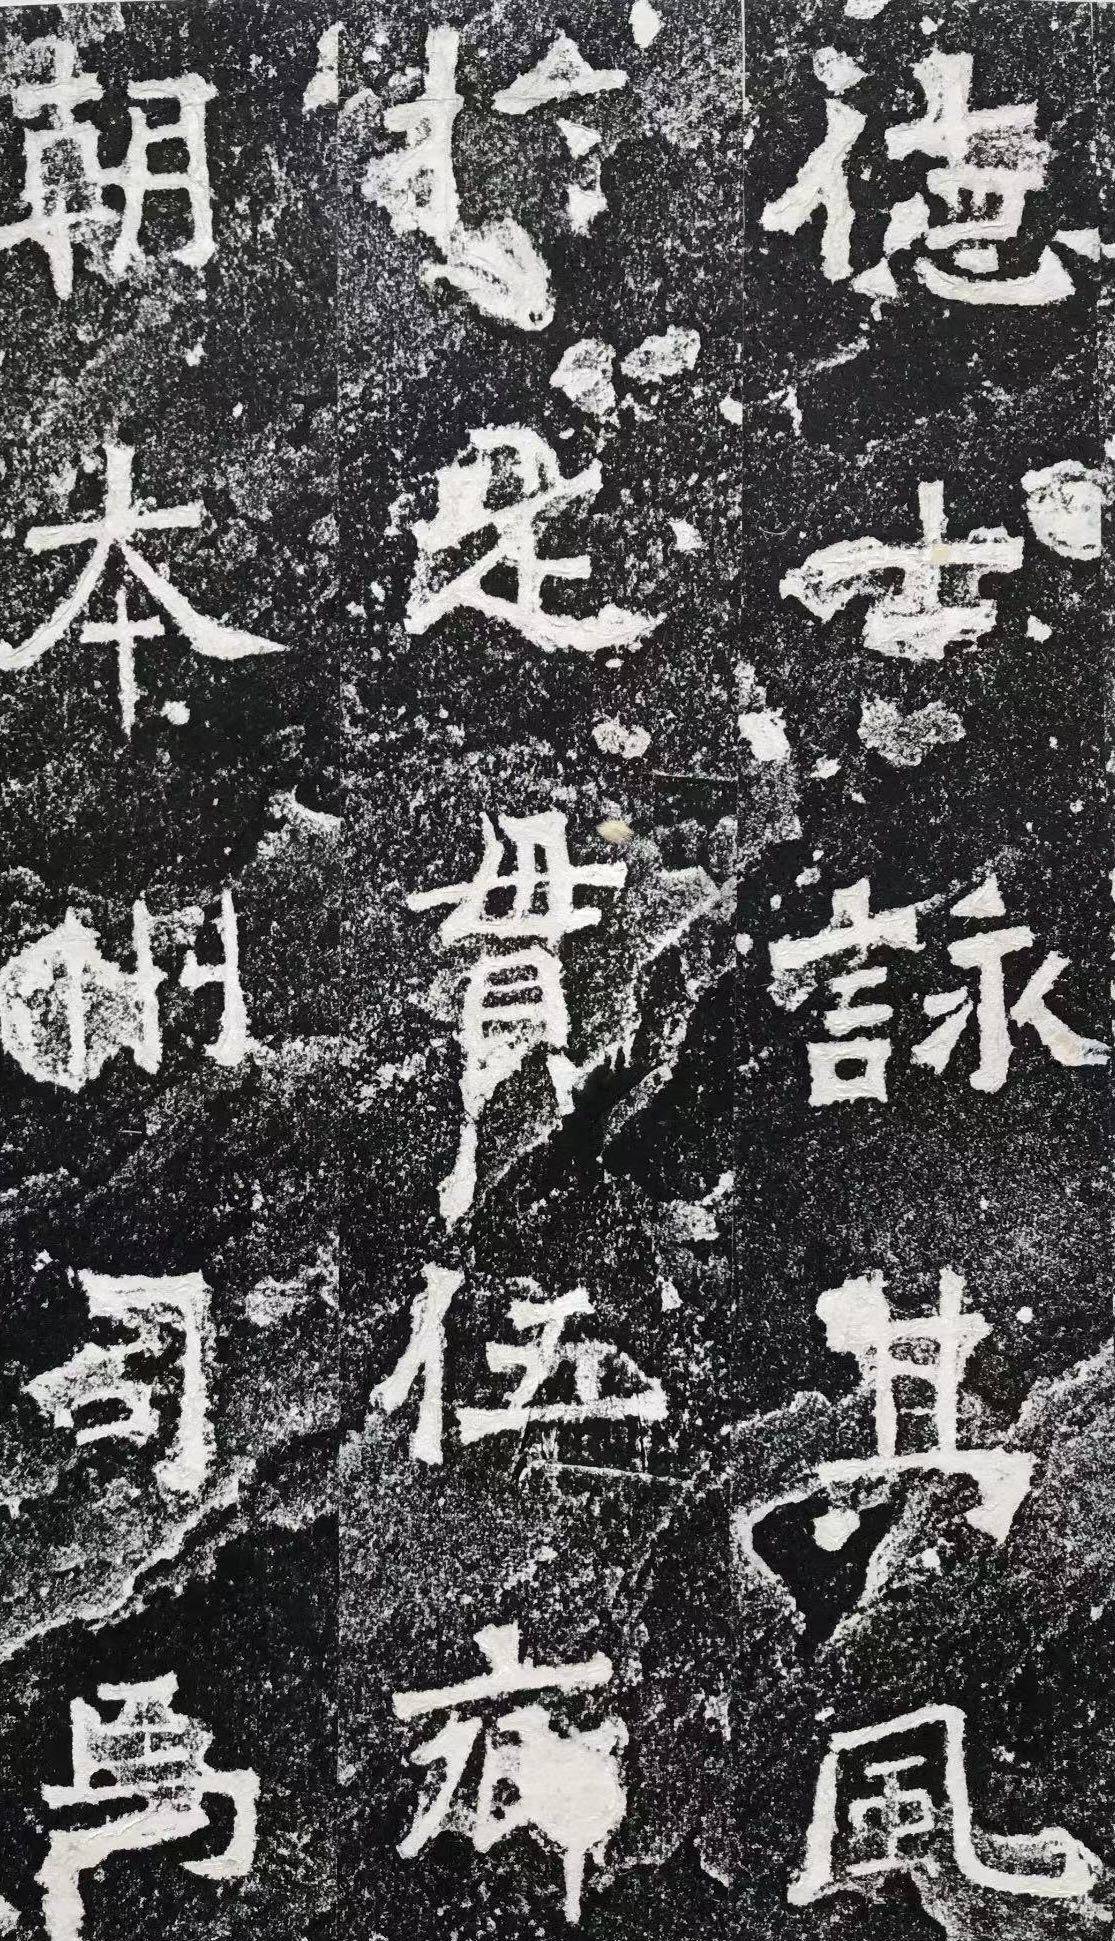 德士詠其風
於是貫伍
朝本州司馬